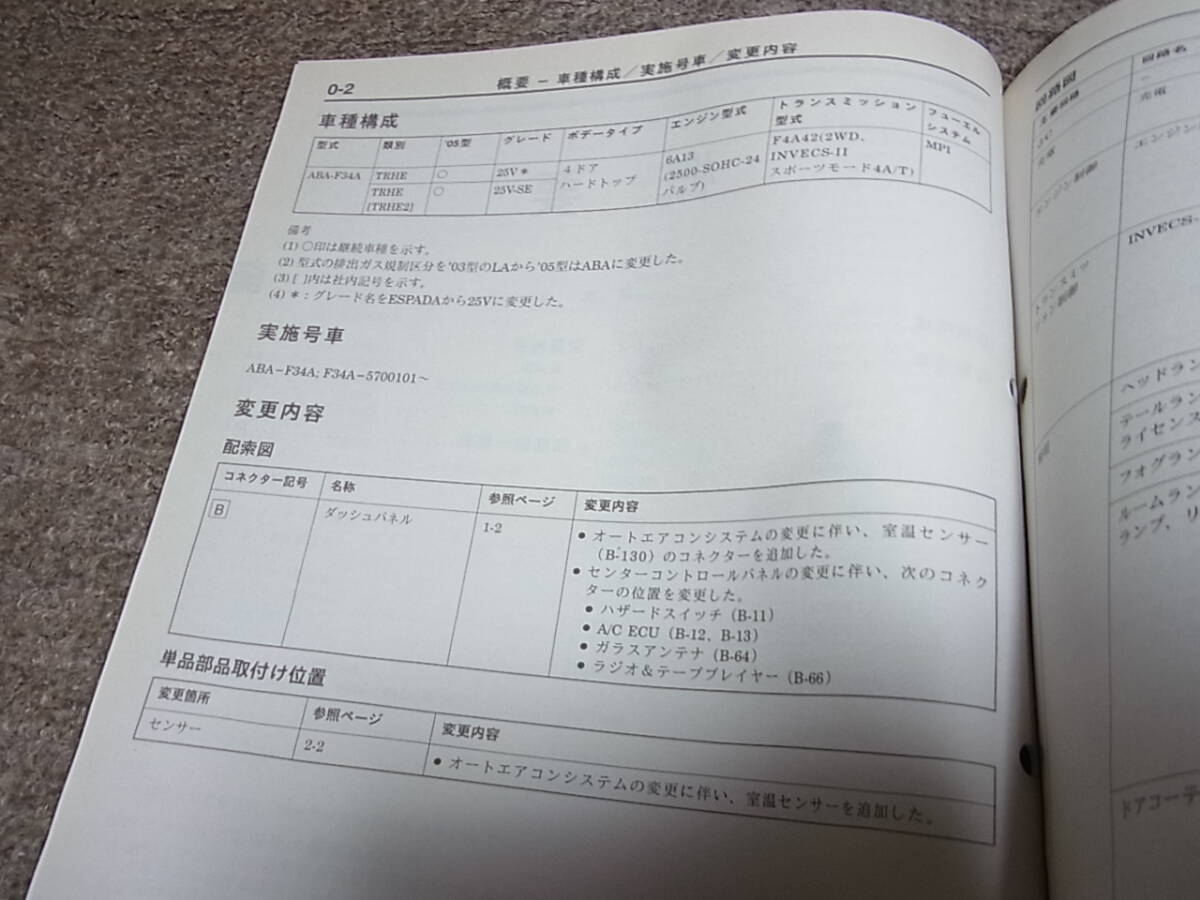 0-2
概要 － 車種構成／実施号車／変更内容
車種構成
型式 類別 '05型 グレード ボデータイプ エンジン型式 トランスミッション型式 フューエルシステム
ABA-F34A TRHE ○ 25V＊ 4ドアハードトップ 6A13(2500-SOHC-24バルブ) F4A42(2WD、INVECS-IIスポーツモード4A/T) MPI
TRHE ○ 25V-SE
[TRHE2]
備考
(1) ○印は継続車種を示す。
(2) 型式の排出ガス規制区分を'03型のLAから'05型はABAに変更した。
(3) [ ]内は社内記号を示す。
(4) ＊：グレード名をESPADAから25Vに変更した。
実施号車
ABA－F34A; F34A－5700101～
変更内容
配索図
コネクター記号 名称 参照ページ 変更内容
B ダッシュパネル 1-2
● オートエアコンシステムの変更に伴い、室温センサー
（B-130）のコネクターを追加した。
● センターコントロールパネルの変更に伴い、次のコネク
ターの位置を変更した。
● ハザードスイッチ（B-11）
● A/C ECU（B-12、B-13）
● ガラスアンテナ（B-64）
● ラジオ＆テーププレイヤー（B-66）
単品部品取付け位置
変更箇所 参照ページ 変更内容
センサー 2-2 ● オートエアコンシステムの変更に伴い、室温センサーを追加した。
回路図
回路名
充電
充電
エンジン制御
エンジン
トランスミッ
ション制御
INVECS-
ヘッドラン
テールラン
ライセンス
フォグラン
ルームラン
ランプ、リ
ドアコーテ